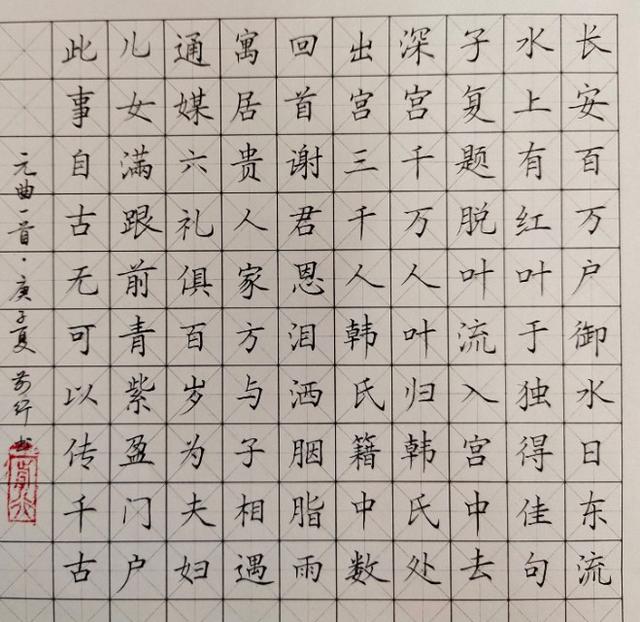 长安百万户御水日东流
水上有红叶于独得佳句
子复题脱叶流入宫中去
深宫千万人叶归韩氏处
出宫三千人韩氏籍中数
回首谢君恩泪洒胭脂雨
寓居贵人家方与子相遇
通媒六礼俱百岁为夫妇
儿女满跟前青紫盈门户
此事自古无可以传千古
元曲一首·庚子夏